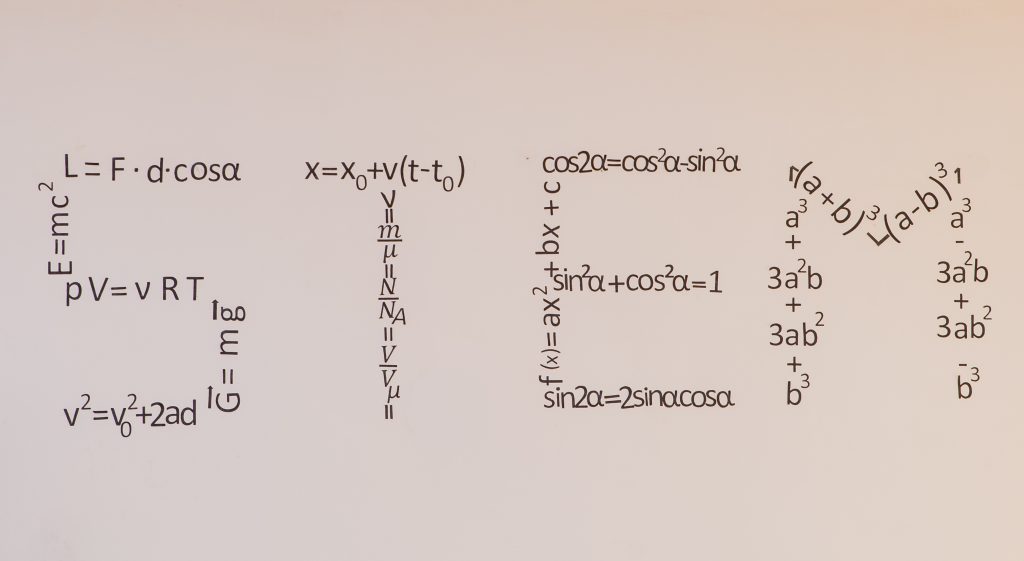 L = F · d·cosα
E=mc²
pV= ν R T
G⃗ = m g⃗
v²=v₀²+2ad
x=x₀+v(t-t₀)
ν=m/μ=N/N_A=V/V_μ=
cos2α=cos²α-sin²α
f(x)=ax²+bx+c
sin²α+cos²α=1
sin2α=2sinαcosα
(a+b)³
a³
+
3a²b
+
3ab²
+
b³
(a-b)³
a³
-
3a²b
+
3ab²
-
b³